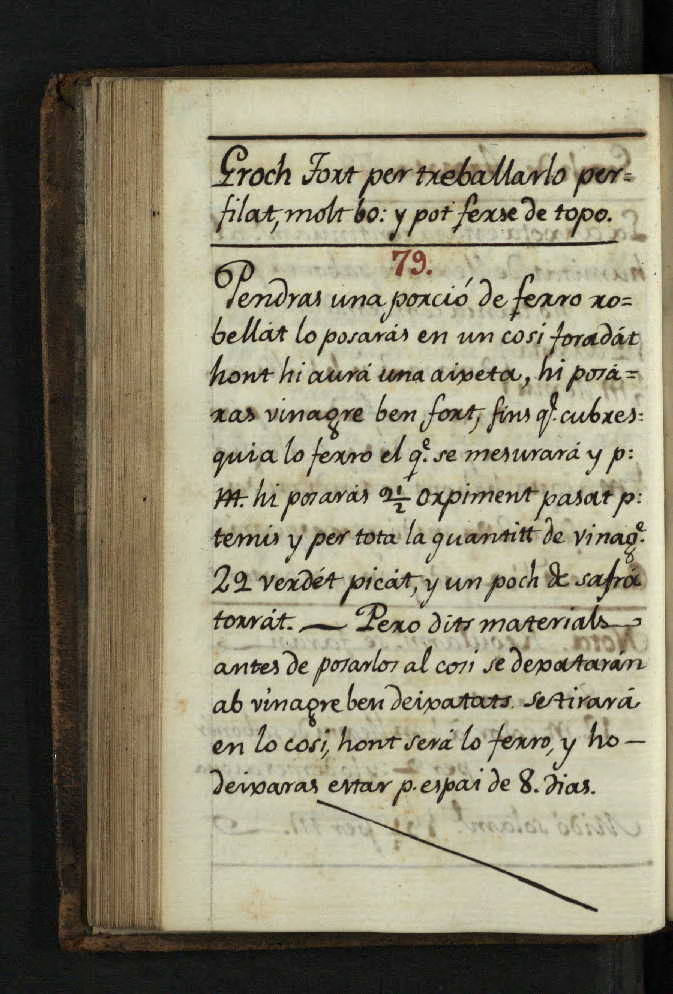 Groch Fort per treballarlo per=
filat, molt bo: y pot ferse de topo.
79.
Pendras una porció de ferro ro=
bellát lo posarás en un cosi foradát
hont hi aurá una aixeta, hi posá=
ras vinagre ben fort, fins qᵉ. cubres:
quia lo ferro el qᵉ. se mesurará y p:
m. hi posarás 2½ Orpiment pasat p:
temis y per tota la quantitt de vinagᵉ.
2 verdét picát, y un poch de safrá
torrát. — Pero dits materials
antes de posarlos al cosi se dexatarán
ab vinagre ben deixatats. se tirará
en lo cosi, hont será lo ferro, y ho —
deixaras estar p. espai de 8. dias.